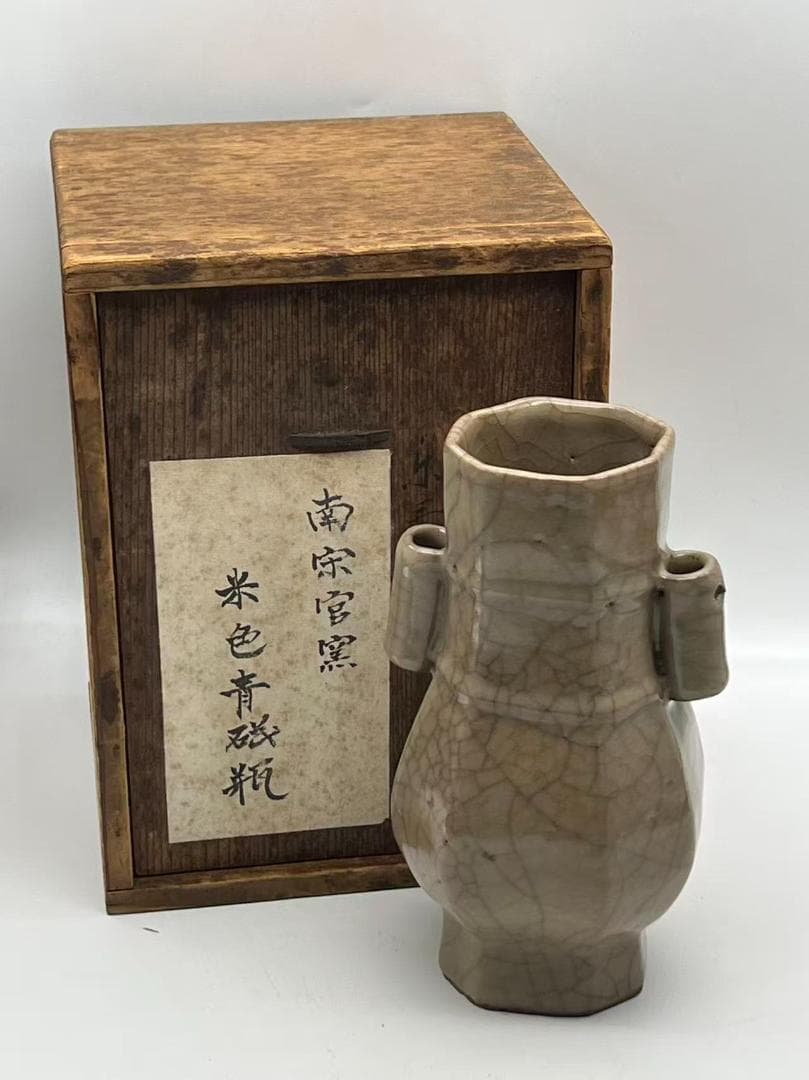 南宋官窯
米色青磁瓶